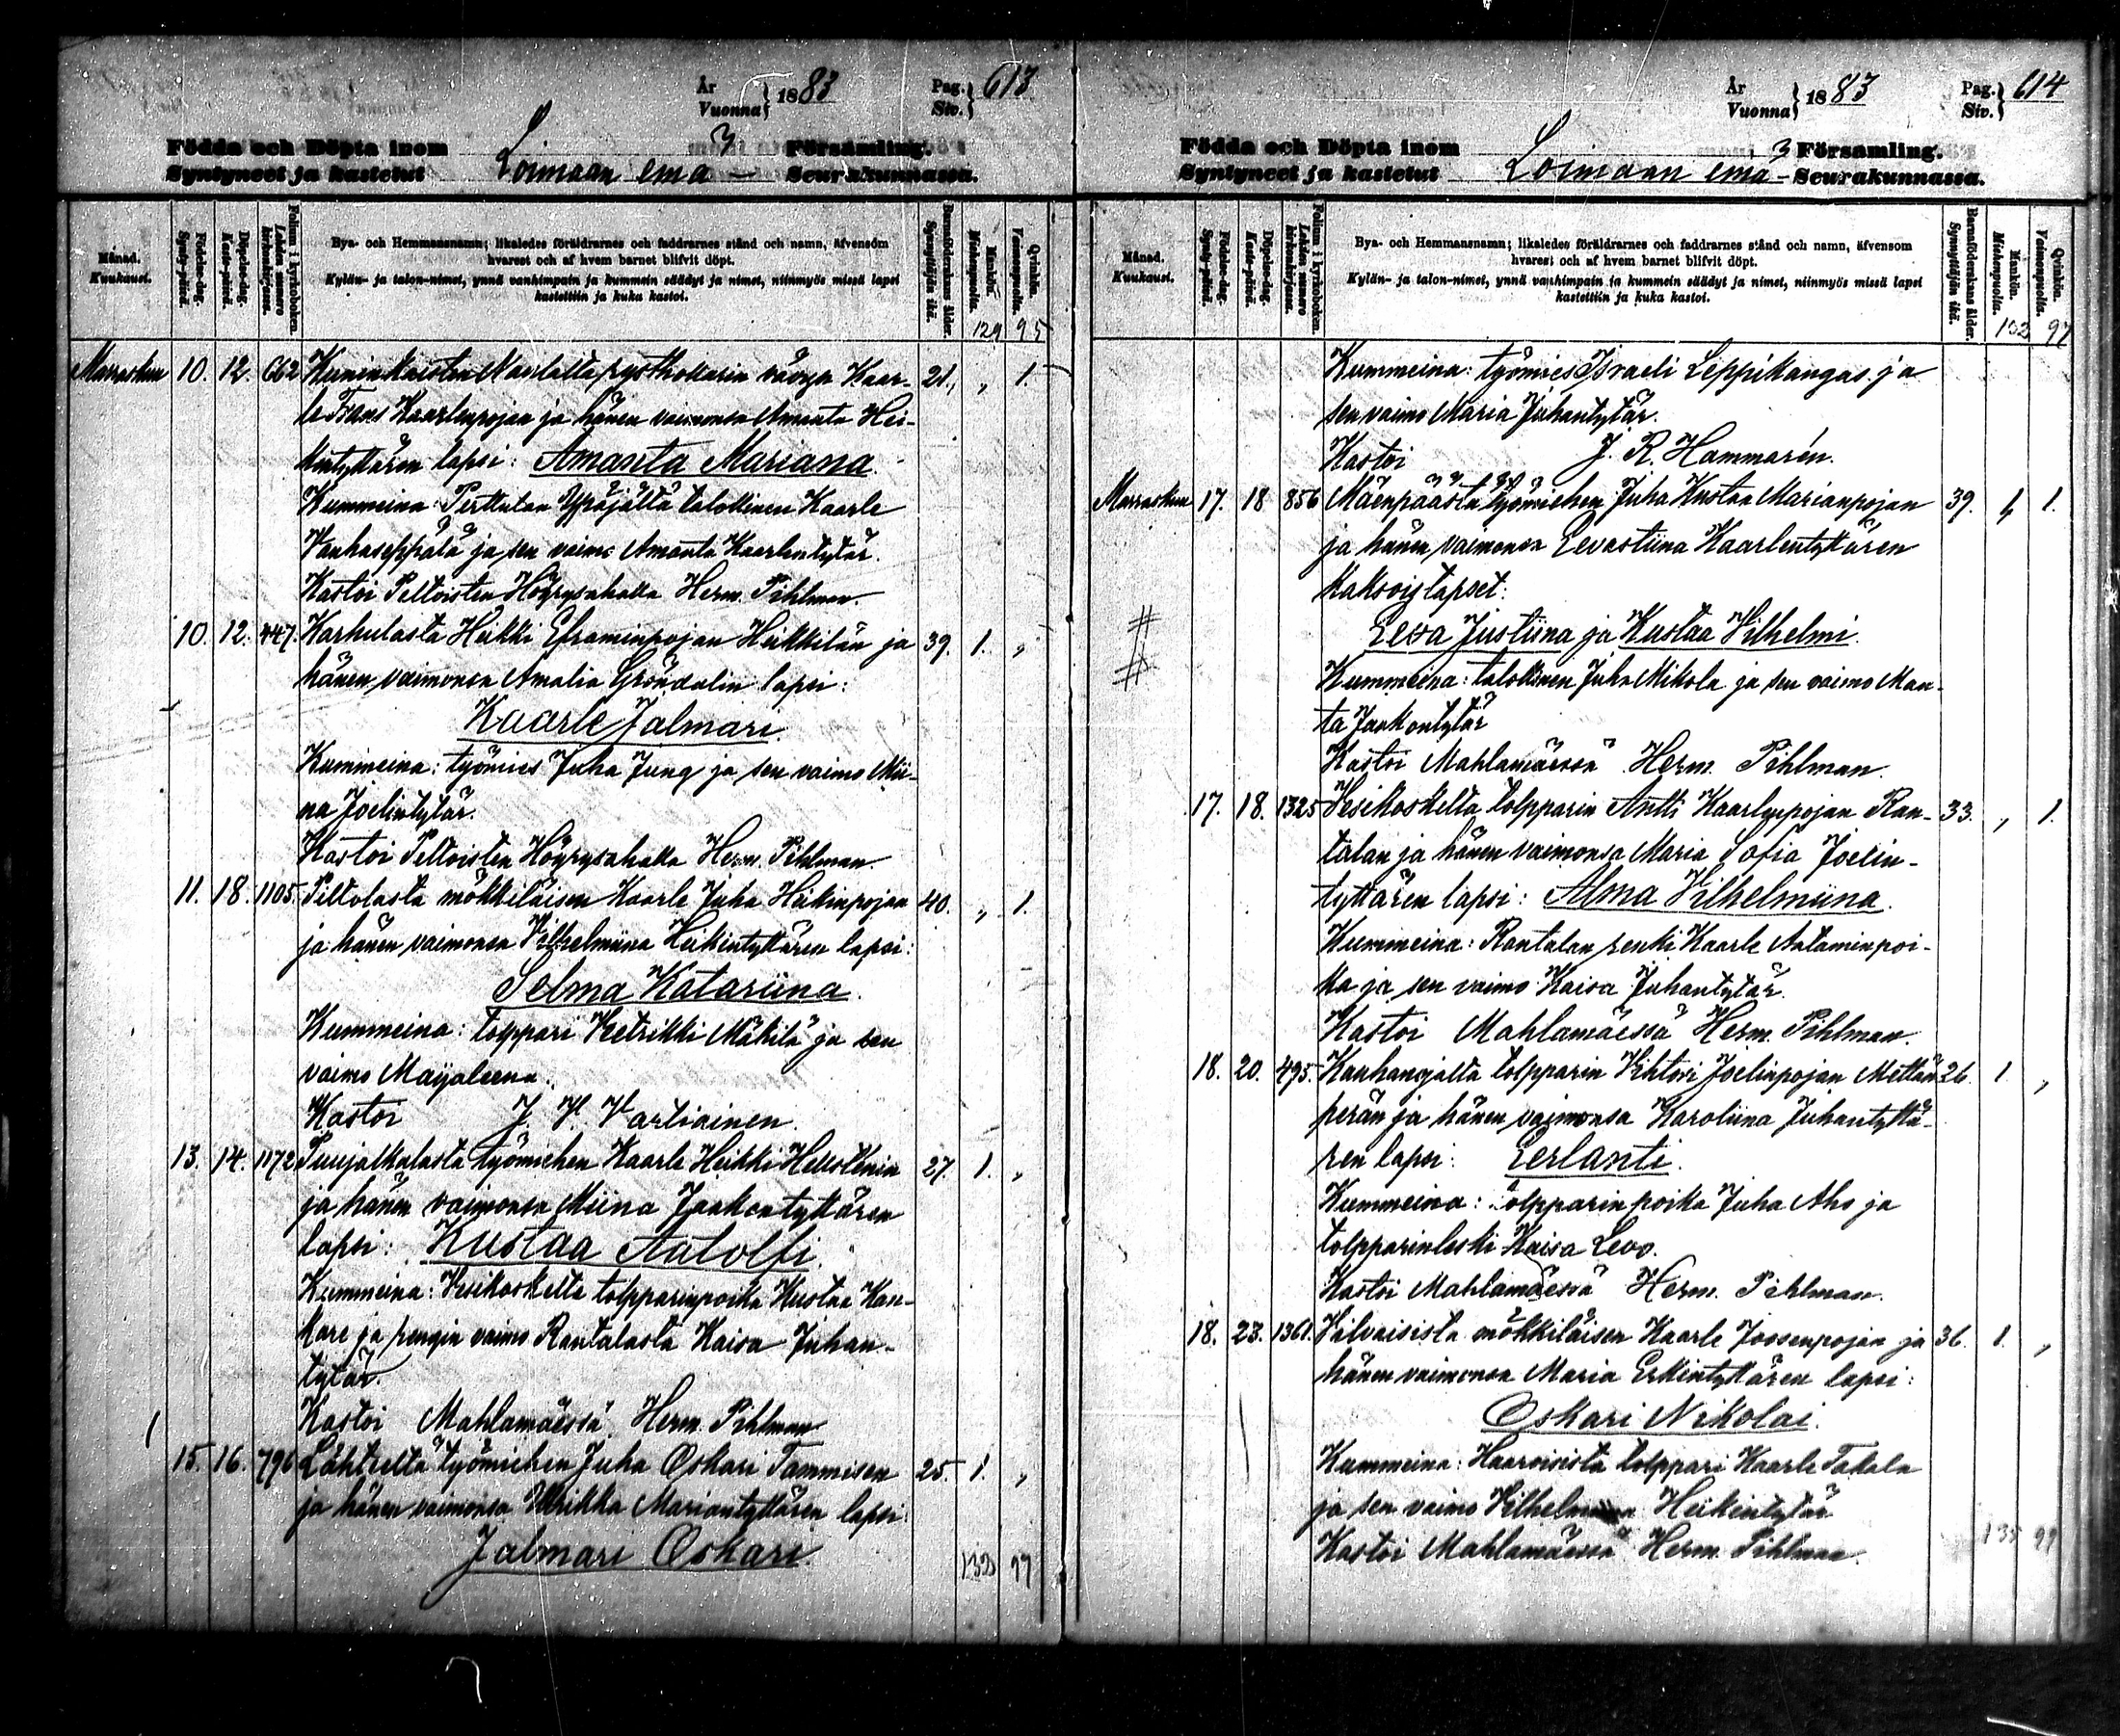 År
Vuonna } 1883
Pag.
Siv. } 613
Födda och Döpta inom
Syntyneet ja kastetut
Loimaan emä-
Församling.
Seurakunnassa.
Månad.
Kuukausi.
Födelse-dag.
Synty-päivä.
Döpelse-dag.
Kaste-päivä.
Folium i kyrkoboken.
Lehden numero kirkonkirjassa.
Bya- och Hemmansnamn; likaledes föräldrarnes och faddrarnes stånd och namn, äfvensom
hvarest och af hvem barnet blifvit döpt.
Kylän- ja talon-nimet, ynnä vanhimpain ja kummein säädyt ja nimet, niinmyös missä lapsi
kastettiin ja kuka kastoi.
Barnaföderskans ålder.
Synnyttäjän ikä.
Mankön.
Miehenpuolia.
Qvinkön.
Vaimonpuolia.
129 95
Marraskuu 10. 12. 662 vävyn Kaar- 21. „ 1.
le Frans Kaarlenpojan ja hänen vaimonsa Amanta Hei-
kintyttären lapsi: Amanta Mariana.
Kummeina: Perttulan Ypäjältä talollinen Kaarle
Vanhaseppälä ja sen vaimo Amanta Kaarlentytär.
Kastoi Peltoisten Höyrysahalla Herm. Pihlman.
10. 12. 447. Karhulasta Heikki Eframinpojan Heikkilän ja 39. 1. „
hänen vaimonsa Amalia Gröndalin lapsi:
Kaarle Jalmari.
Kummeina: työmies Juha Jung ja sen vaimo Mii-
na Joelintytär.
Kastoi Peltoisten Höyrysahalla Herm. Pihlman.
11. 18. 1105. Piltolasta mökkiläisen Kaarle Juha Heikinpojan 40. „ 1.
ja hänen vaimonsa Vilhelmiina Heikintyttären lapsi:
Selma Katariina.
Kummeina: tolppari Vretrikki Mäkilä ja sen
vaimo Maijaleena.
Kastoi J. V. Vartiainen.
13. 14. 1172 Puujalkalasta työmiehen Kaarle Heikki Hellsténin 27. 1. „
ja hänen vaimonsa Miina Jaakontyttären
lapsi: Kustaa Aatolfi.
Kummeina: Vesikoskelta tolpparinpoika Kustaa Kan-
kare ja rengin vaimo Rantalasta Kaisa Juhan-
tytär.
Kastoi Mahlamäessä Herm. Pihlman
15. 16. 796 Lähteeltä työmiehen Juha Oskari Tammisen 25. 1. „
ja hänen vaimonsa Ulriikka Mariantyttären lapsi:
Jalmari Oskari.
132 97
År
Vuonna } 1883
Pag.
Siv. } 614
Födda och Döpta inom
Syntyneet ja kastetut
Loimaan emä-
Församling.
Seurakunnassa.
Månad.
Kuukausi.
Födelse-dag.
Synty-päivä.
Döpelse-dag.
Kaste-päivä.
Folium i kyrkoboken.
Lehden numero kirkonkirjassa.
Bya- och Hemmansnamn; likaledes föräldrarnes och faddrarnes stånd och namn, äfvensom
hvarest och af hvem barnet blifvit döpt.
Kylän- ja talon-nimet, ynnä vanhimpain ja kummein säädyt ja nimet, niinmyös missä lapsi
kastettiin ja kuka kastoi.
Barnaföderskans ålder.
Synnyttäjän ikä.
Mankön.
Miehenpuolia.
Qvinkön.
Vaimonpuolia.
132 97
Kummeina: työmies Israeli Leppikangas ja
sen vaimo Maria Juhantytär.
Kastoi J. R. Hammarén.
Marraskuu 17. 18 856 Mäenpäästä työmiehen Juha Kustaa Marianpojan 39. 1. 1.
ja hänen vaimonsa Eevastiina Kaarlentyttären
kaksoislapset:
Eeva Justiina ja Kustaa Vilhelmi.
Kummeina: talollinen Juha Mikola ja sen vaimo Man-
ta Jaakontytär
Kastoi Mahlamäessä Herm. Pihlman.
17. 18. 1325 Vesikoskelta tolpparin Antti Kaarlenpojan Ran- 33. „ 1.
talan ja hänen vaimonsa Maria Sofia Joelin-
tyttären lapsi: Alma Vilhelmiina.
Kummeina: Rantalan renki Kaarle Aataminpoi-
ka ja sen vaimo Kaisa Juhantytär.
Kastoi Mahlamäessä Herm. Pihlman.
18. 20. 495. Kauhanojalta tolpparin Vihtori Joelinpojan Mettän- 26. 1. „
perän ja hänen vaimonsa Karoliina Juhantyttä-
ren lapsi: Eerlanti.
Kummeina: tolpparinpoika Juha Aho ja
tolpparinleski Kaisa Levo.
Kastoi Mahlamäessä Herm. Pihlman.
18. 23. 1361. Vilvaisista mökkiläisen Kaarle Joosenpojan ja 36. 1. „
hänen vaimonsa Maria Erkintyttären lapsi:
Oskari Nikolai.
Kummeina: Haaroisista tolppari Kaarle Takala
ja sen vaimo Heikintytär
Kastoi Mahlamäessä Herm. Pihlman.
135 99